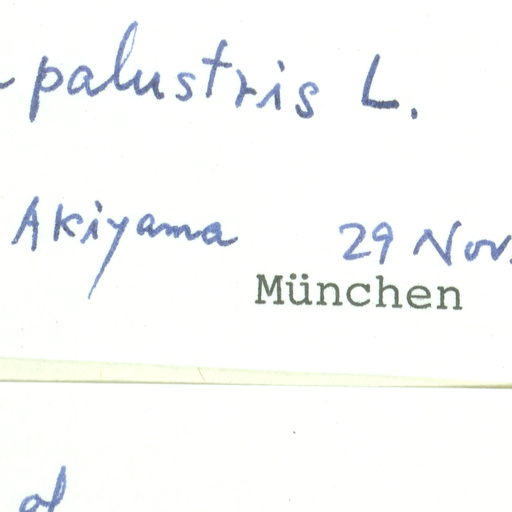 palustris L.
Akiyama 29 Nov.
München